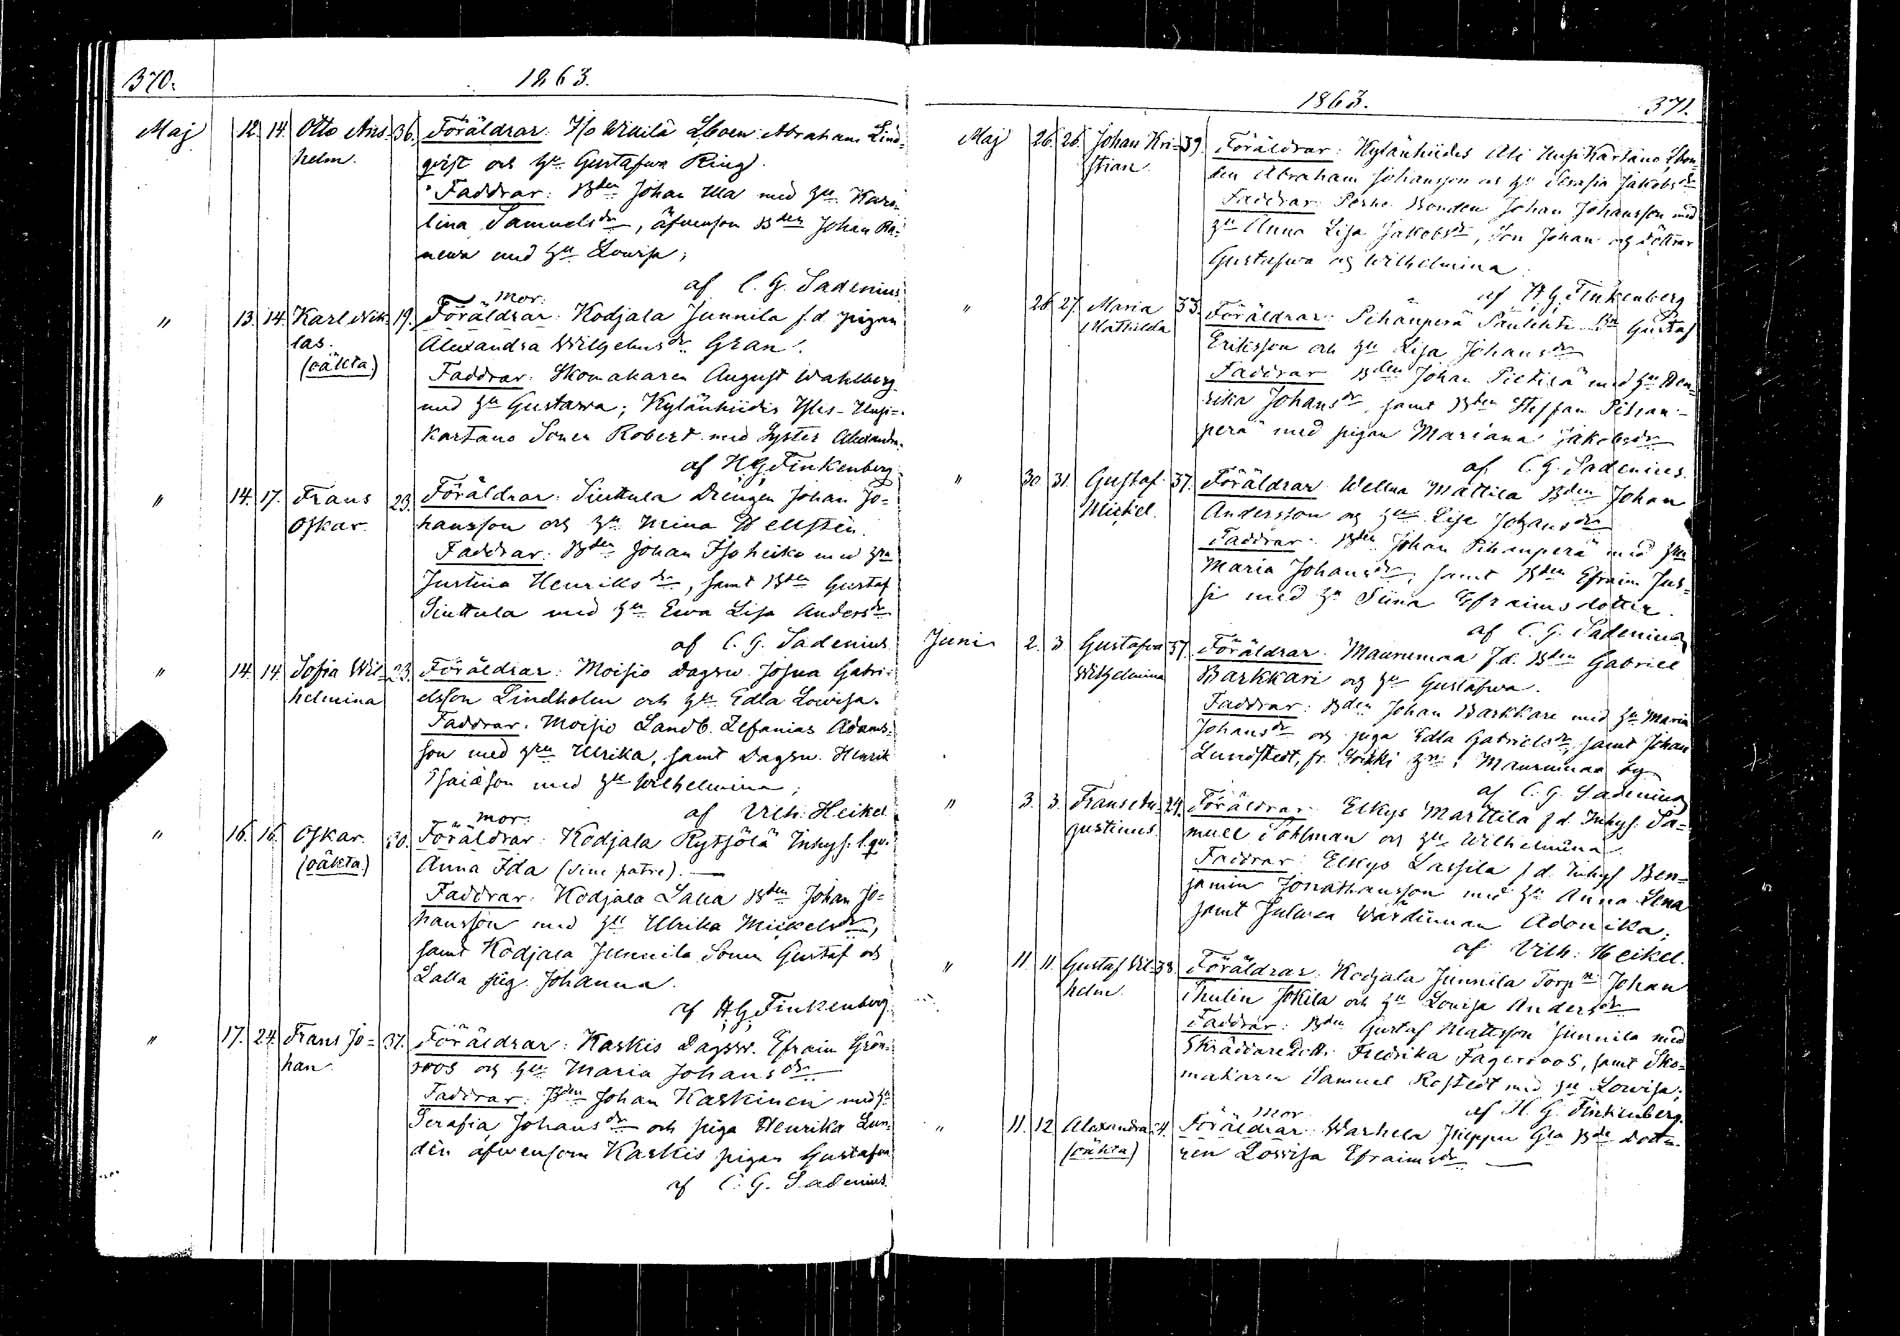 370.
1863.
Maj 12. 14. Otto Ans- 36. Föräldrar: Iso Wikilä Lboen Abraham Lind-
helm. qvist och hu Gustafwa Ring.
Faddrar: Bden Johan Ula med hu Karo-
lina Samuelsdr, äfvensom Bden Johan Ra-
newa med hu Lovisa;
af C. G. Sadenius.
mor:
" 13. 14. Karl Nik- 19. Föräldrar: Kodjala Junnila f.d. pigan
las. Alexandra Wilhelmsdr Gran.
(oäkta.) Faddrar: Skomakaren August Wahlberg
med hu Gustava; Kylänhiidis Yli-Husi-
kartano Sonen Robert med Syster Alexandra.
af H. G. Finkenberg
" 14. 17. Frans 23. Föräldrar: Siuttula Drengen Johan Jo-
Oskar. hansson och hu Mina Hellsten.
Faddrar: Bden Johan Isoheiko med hu
Justina Henriksdr, samt Bden Gustaf
Siuttula med hu Ewa Lisa Andersdr
af C. G. Sadenius.
" 14. 14. Sofia Wil- 23. Föräldrar: Moisio Dagsw. Josua Gabri-
helmina elsson Lindholm och hu Edla Lowisa.
Faddrar: Moisio Landb. Zefanias Adams-
son med hu Ulrika, samt Dagsw. Henrik
Isaiæson med hu Wilhelmina;
af Vilh: Heikel
mor:
" 16. 16. Oskar. 30. Föräldrar: Kodjala Rytsjölä Inhys. l.qv.
(oäkta.) Anna Ida (sine patre).
Faddrar: Kodjala Lalla Bden Johan Jo-
hansson med hu Ulrika Mickelsdr,
samt Kodjala Junnila Sonen Gustaf och
Lalla pig. Johanna.
af H. G. Finkenberg
" 17. 24. Frans Jo- 37. Föräldrar: Kaskis Dagsw. Efraim Grön-
han. roos och hu Maria Johansdr
Faddrar: Bden Johan Kaskinen med hu
Serafia Johansdr och piga Henrika Lun-
dén äfwensom Kaskis pigan Gustafwa
af C. G. Sadenius.
1863.
371.
Maj 26. 26. Johan Kri- 39. Föräldrar: Kylänhiidis Ali Husikartano Lbon-
stian. den Abraham Johansson och hu Serafia Jakobsdr
Faddrar: Bonden Johan Johansson med
hu Anna Lisa Jakobsdr, Son Johan och döttrar
Gustafwa och Wilhelmina
af H. G. Finkenberg
" 26. 27. Maria 33. Föräldrar: Pihänperä Bn Gustaf
Mathilda Eriksson och hu Lisa Johansdr
Faddrar Bden Johan Pietilä med hu Hen-
rika Johansdr, samt Bden Steffan Pihan-
perä med pigan Mariana Jakobsdr
af C. G. Sadenius.
" 30. 31. Gustaf 37. Föräldrar: Wellua Mattila Bden Johan
Mickel. Andersson och hu Lisa Johansdr
Faddrar: Bden Johan Pihanperä med hu
Maria Johansdr, samt Bden Efraim Jus-
si med hu Siina Efraimsdotter.
af C. G. Sadenius
Juni 2. 3. Gustafwa 37. Föräldrar: Maurumaa f.d. Bden Gabriel
Wilhelmina Barkkari och hu Gustafwa.
Faddrar: Bden Johan Barkkare med hu Maria
Johansdr och piga Edla Gabrielsdr, samt Johan
Lundstedt, fr. i Maurumaa by
af C. G. Sadenius
" 3. 3. Frans Au- 24. Föräldrar: Elkys Marttila f.d. Inhys. Sa-
gustinus. muel Pohlman och hu Wilhelmina
Faddrar: Elkys Lassila f.d. Inhys Ben-
jamin Jonathansson med hu Anna Lena
samt Wärdinnan Adonika;
af Vilh: Heikel.
" 11. 11. Gustaf Wil- 38. Föräldrar: Kodjala Junnila Torpn Johan
helm. Thulin Jokila och hu Lovisa Andersdr
Faddrar: Bden Gustaf Mattsson Junnila med
Skräddaredott. Fredrika Fagerroos, samt Sko-
makaren Samuel Rostedt med hu Lowisa;
af H. G. Finkenberg.
mor
" 11. 12. Alexandra Föräldrar: Warhela Bde dott-
(oäkta) ren Lovisa Efraimsdr